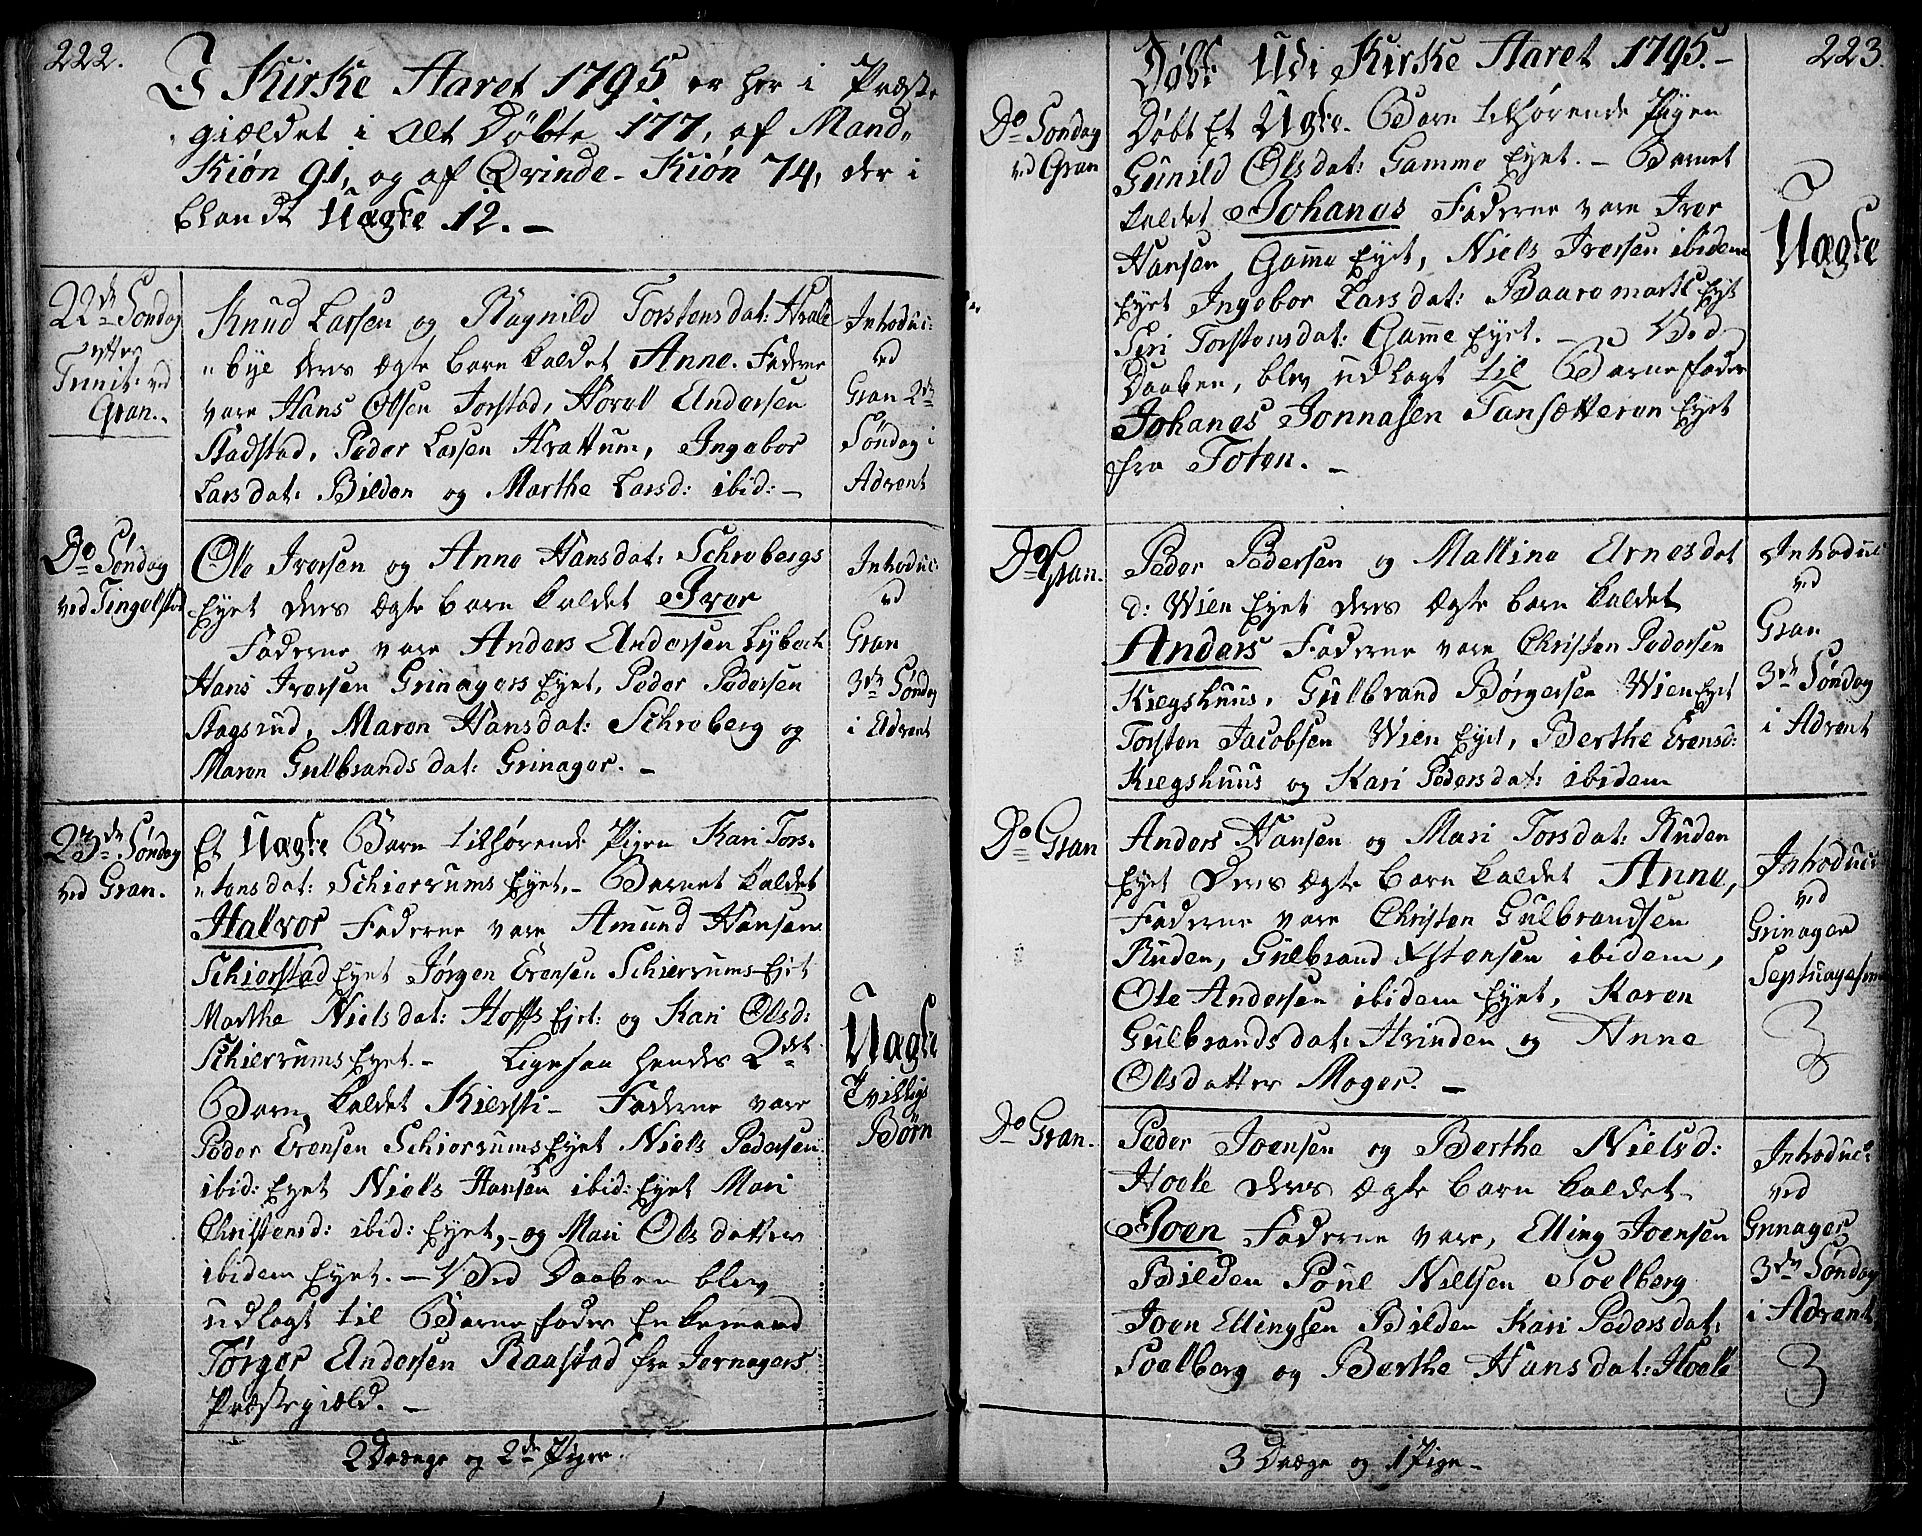 222.
I Kirke Aaret 1795 er her i Præste
giældet i Alt Døbte 177, af Mand-
Kiøn 91, og af Qvinde-Kiøn 74, der i
blandt Uægte 12. –
22de Søndag
efter
Trinit: ved
Gran.
Knud Larsen og Ragnild Torstensdat: Hvale
bye deres ægte barn kaldet Anne. Fadderne
vare Hans Olsen Jorstad, Horall Andersen
Peder Larsen Hvattum, Ingebor
Larsdat: Bilden og Marthe Larsd: ibid: –
Introduc:
ved
Gran 2den
Søndag i
Advent
Do Søndag
ved Tingelstad
Ole Iversen og Anne Hansdat: Schrebergs
Eyet deres ægte barn kaldet Iver
Fadderne vare Anders Andersen Lybech
Hans Iversen Grinagers Eyet, Peder Pedersen
Stagsrud, Maren Hansdat: Schreberg og
Maren Gulbrandsdat: Grinager. –
Introduc:
ved
Gran
3de Søndag
i Advent
23de Søndag
ved Gran.
Et Uægte Barn tilhørende Pigen Kari Tors-
tensdat: Schierrums Eyet. – Barnet kaldet
Halvor Fadderne vare Amund Hansen
Schierstad Eyet Jørgen Evensen Schierrums Ejet
Marthe Nielsdat: Hoffs Ejet: og Kari Olsd:
Schierrums Eyet. – Ligesaa hendes 2det
Barn, kaldet Kiersti – Fadderne vare
Peder Evensen Schierrums Eyet Niels Pedersen
ibid: Eyet Niels Hansen ibid: Eyet Mari
Christensd: ibid: Eyet, og Mari Olsdatter
ibidem Eyet. – Ved Daaben blev
udlagt til Barnefader Enkemand
Tørger Andersen Raastad fra Jevnagers
Præstegiæld. –
Uægte
Tvillige
Børn
2 Drænge og 2de Piger.
223.
Døbt Udi Kirke Aaret 1795. –
Do Søndag
ved Gran
Døbt Et Uægte Barn tilhørende Pigen
Gunild Olsdat: Gamme Eyet. – Barnet
kaldet Johanes Fadderne vare Iver
Hansen Gamme Eyet, Niels Iversen ibidem
Eyet Ingebor Larsdat: Baaremarke Eyet
Siri Torstensdat: Gamme Eyet. – Ved
Daaben, blev udlagt til Barnefader
Johanes Jonnasen Tansætteren Eyet
fra Toten. –
Uægte
Do Gran.
Peder Pedersen og Mallina Arnesdat
d: Wien Eyet deres ægte barn kaldet
Anders Fadderne vare Christen Pedersen
Kiegshuus, Gulbrand Børgersen Wien Eyet
Torsten Jacobsen Wien Eyet, Berthe Evensd:
Kiegshuus og Kari Pedersdat: ibidem
Introduc:
ved
Gran
3de Søndag
i Advent
Do Gran
Anders Hansen og Mari Torsdat: Ruden
Eyet Deres ægte barn kaldet Anne,
Fadderne vare Christen Gulbrandsen
Ruden, Gulbrand Estensen ibidem,
Ole Andersen ibidem Eyet, Karen
Gulbrandsdat: Hvinden og Anne
Olsdatter Moger. –
Introduc:
ved
Grinager
Septuagesim
3
Do Gran.
Peder Joensen og Berthe Nielsd:
Hoele deres ægte barn kaldet
Joen Fadderne vare, Elling Joensen
Bilden Poul Nielsen Soelberg
Joen Ellingsen Bilden Kari Pedersdat:
Soelberg og Berthe Hansdat: Hoele
Introduc:
ved
Grinager
3de Søndag
i Advent
3
3 Dræge og 1 Pige –